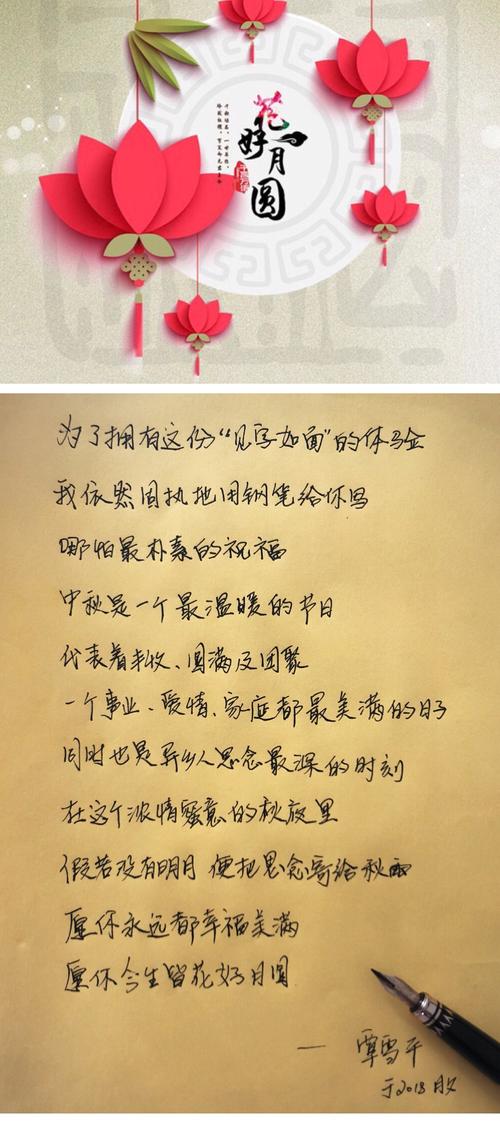 花好月圆
为了拥有这份“见字如面”的体验
我依然固执地用钢笔给你写
哪怕最朴素的祝福
中秋是一个最温暖的节日
代表着丰收、圆满及团聚
一个事业、爱情、家庭都最美满的日子
同时也是异乡人思念最深的时刻
在这个浓情蜜意的秋夜里
假若没有明月 便把思念寄给秋雨
愿你永远都幸福美满
愿你今生皆花好月圆
— 覃雪平
于2018